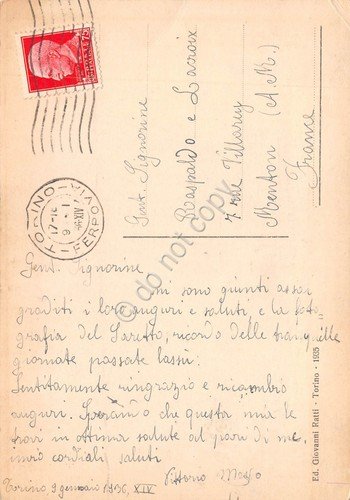 Gent. Signorine
Raspaldo e Lacroix
7 rue Villarey
Menton (A.M.)
France
TORINO FERROVIA
17-18
9 1
36 XIV
Gent. Signorine
mi sono giunti assai
graditi i loro auguri e saluti, e la foto
grafia del Laretto, ricordo delle tranquille
giornate passate lassù:
Sentitamente ringrazio e ricambio
auguri. Speriamo che questa mia le
trovi in ottima salute al pari di me.
invio cordiali saluti
Vittorio
Torino 9 gennaio 1936, XIV
Ed. Giovanni Ratti - Torino - 1935
do not copy